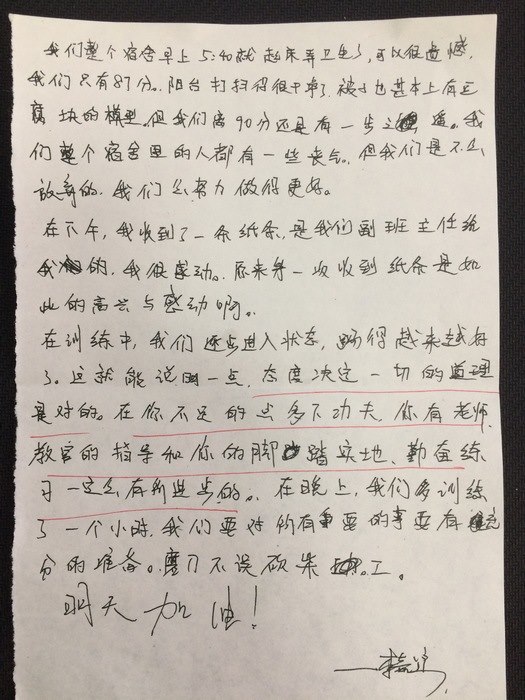 我们整个宿舍早上5:40就起来弄卫生了,可以很遗憾,
我们只有87分。阳台打扫得很干净了,被子也基本上有豆
腐块的模型。但我们离90分还是有一步之遥。我
们整个宿舍里的人都有一些丧气。但我们是不会
放弃的,我们会努力做得更好。
在下午,我收到了一条纸条,是我们副班主任给
我的,我很感动。原来第一次收到纸条是如
此的高兴与感动啊。
在训练中,我们逐步进入状态,踢得越来越好
了。这就能说明一点,态度决定一切的道理
是对的。在你不足的点多下功夫,你有老师,
教官的指导和你的脚踏实地、勤奋练
习一定会有所进步的。在晚上,我们多训练
了一个小时,我们要对所有重要的事要有充
分的准备。磨刀不误砍柴工。
明天加油!